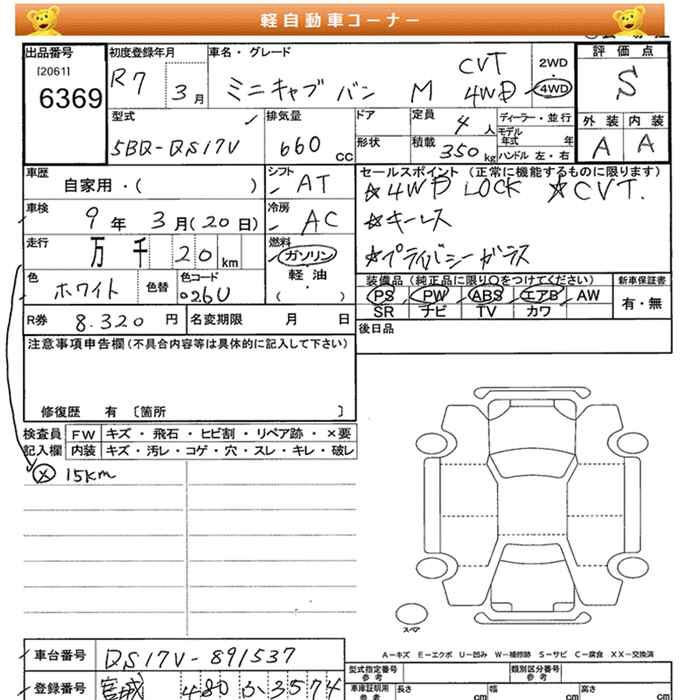 軽自動車コーナー
出品番号
[2061]
6369
初度登録年月
R7 3月
車名・グレード
ミニキャブ バン M CVT 4WD
2WD
・
4WD
評価点
S
外装 内装
A A
型式
5BD-DS17V
排気量
660 cc
ドア
形状
定員
4人
積載
350 kg
ディーラー・並行
モデル年式 年
ハンドル 左・右
車歴
自家用・( )
シフト
AT
セールスポイント (正常に機能するものに限ります)
☆4WD LOCK ☆CVT.
☆キーレス
☆プライバシーガラス
車検
9年 3月(20日)
冷房
AC
走行
万 千 20 km
燃料
ガソリン
軽油
・
( )
色
ホワイト
色替
色コード
026U
装備品 (純正品に限り○をつけてください)
PS PW ABS エアB AW
SR ナビ TV カワ
新車保証書
有・無
R券 8.320 円
名変期限 月 日
後日品
注意事項申告欄 (不具合内容等は具体的に記入して下さい)
修復歴 有 〔箇所 〕
検査員記入欄
FW キズ・飛石・ヒビ割・リペア跡・×要
内装 キズ・汚レ・コゲ・穴・スレ・キレ・破レ
Ⓧ 15km
スペア
A−キズ E−エクボ U−凹み W−補修跡 S−サビ C−腐食 XX−交換済
車台番号 DS17V-891537
型式指定番号
参考
類別区分番号
参考
登録番号 宮城 480 か 3574
車庫証明用
参考
長さ cm
幅 cm
高さ cm